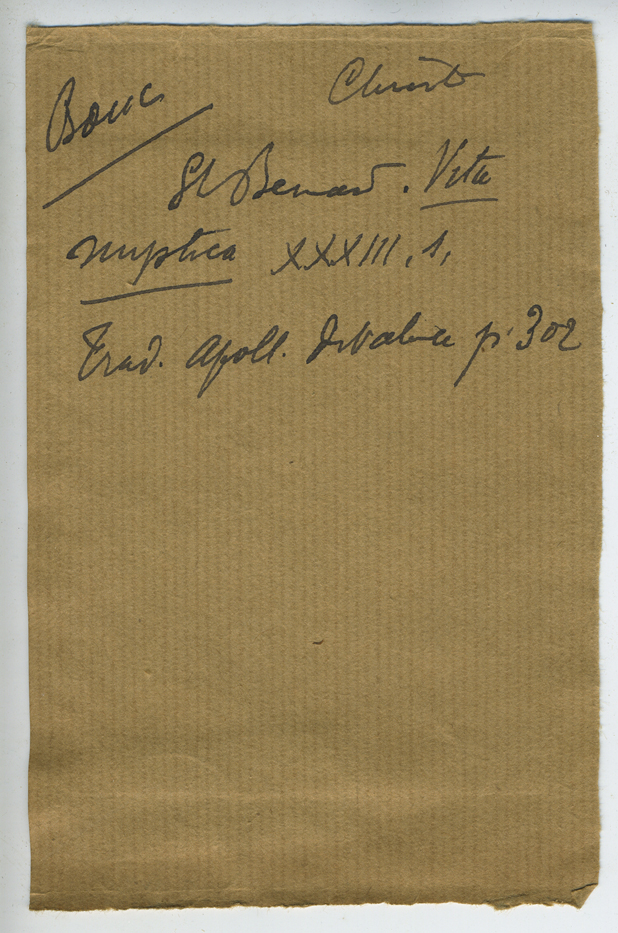 Bouc
Christ
St Bernard. Vita
mystica XXXIII, 1,
Trad. Apoll. de Valence p. 302